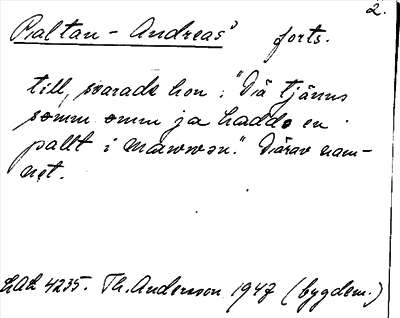 2.
Paltan-Andreas' forts.
till, svarade hon: "Dä tjänns
somm omm ja hadde en
pallt i mawwen." Därav nam-
net.
LAL 4235. Th. Andersson 1947 (bygdem.)